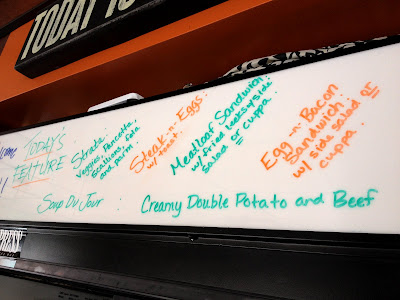 TODAY IS
TODAY'S
FEATURE
Strata:
Veggies, Pancetta,
scallions, feta
and parm.
Steak-n-Eggs:
w/ toast.
Meatloaf Sandwich:
w/ fried leeks w/ side
salad or cuppa
Egg -n- Bacon
Sandwich:
w/ side salad or
cuppa.
Soup Du Jour
Creamy Double Potato and Beef
PRESS